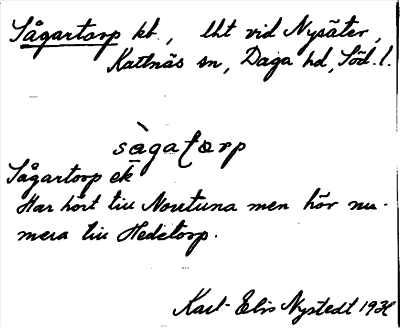 Sågartorp kt., lht vid Nysäter,
Kattnäs sn, Daga hd, Söd. l.
sàgatorp
Sågartorp ek
Har hört till Norrtuna men hör nu-
mera till Hedetorp.
Karl-Elis Nystedt